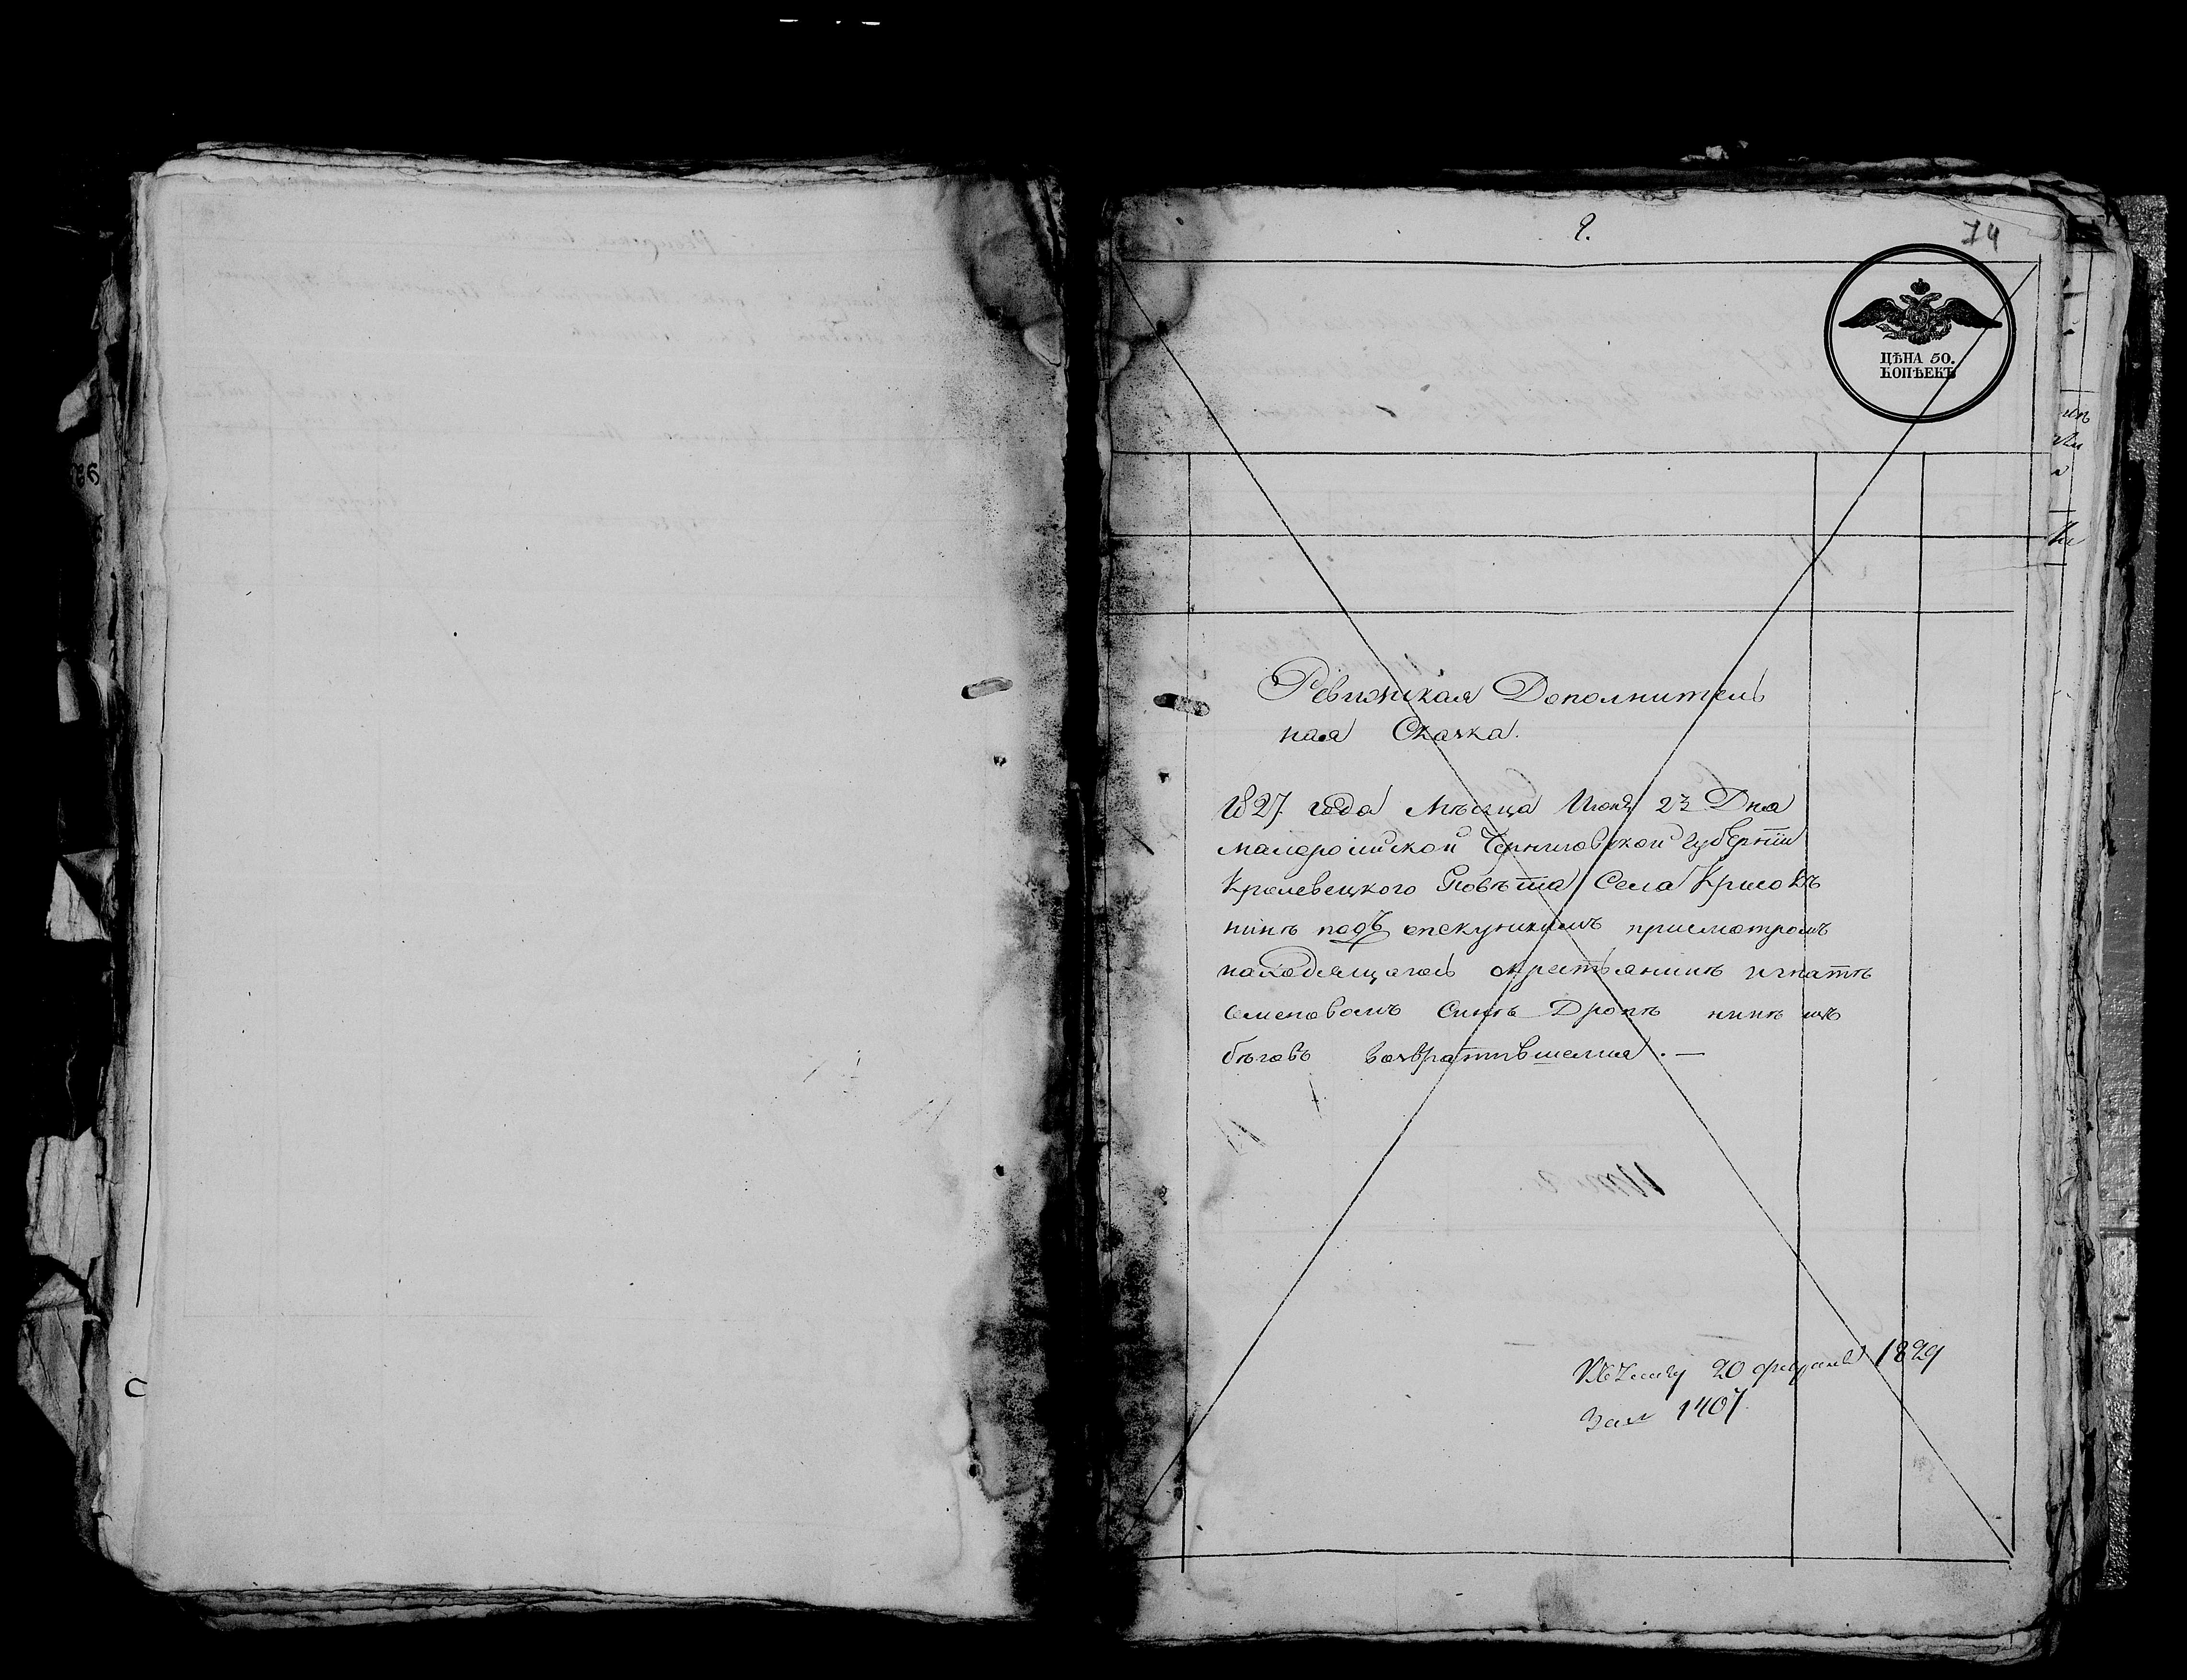 9.
74
ЦѢНА 50.
КОПѢЕКЪ
Ревизская Дополнитель
ная Сказка.
1827. года Мѣсяца Июня 23 Дня
малоросийской Черниговской губернїи
Кролевецкого Повѣта Села Крисокъ
нинѣ подъ опекунскимъ присмотромъ
находящагось окрестьянинѣ игнатѣ
Семеновомъ Синѣ Дропѣ нинѣ изъ
бѣговъ Возвратившемся. —
20 февраля 1829
За № 1407